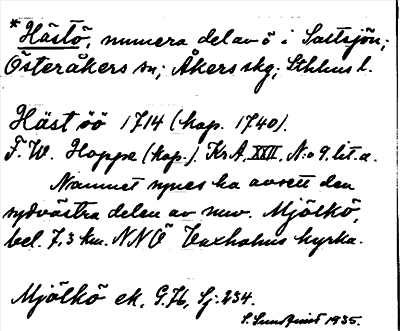 *Hästö, numera del av ö i Saltsjön;
Österåkers sn; Åkers skg; Sthlms l.
Häst öö 1714 (kop. 1740).
F. W. Hoppe (kop.). KrA, XXII, N:o 9. lit. a.
Namnet synes ha avsett den
sydvästra delen av nuv. Mjölkö,
bel. 7,3 km. NNÖ Vaxholms kyrka.
Mjölkö ek. G. 76, Sj: 234.
S. Sundqvist 1935.